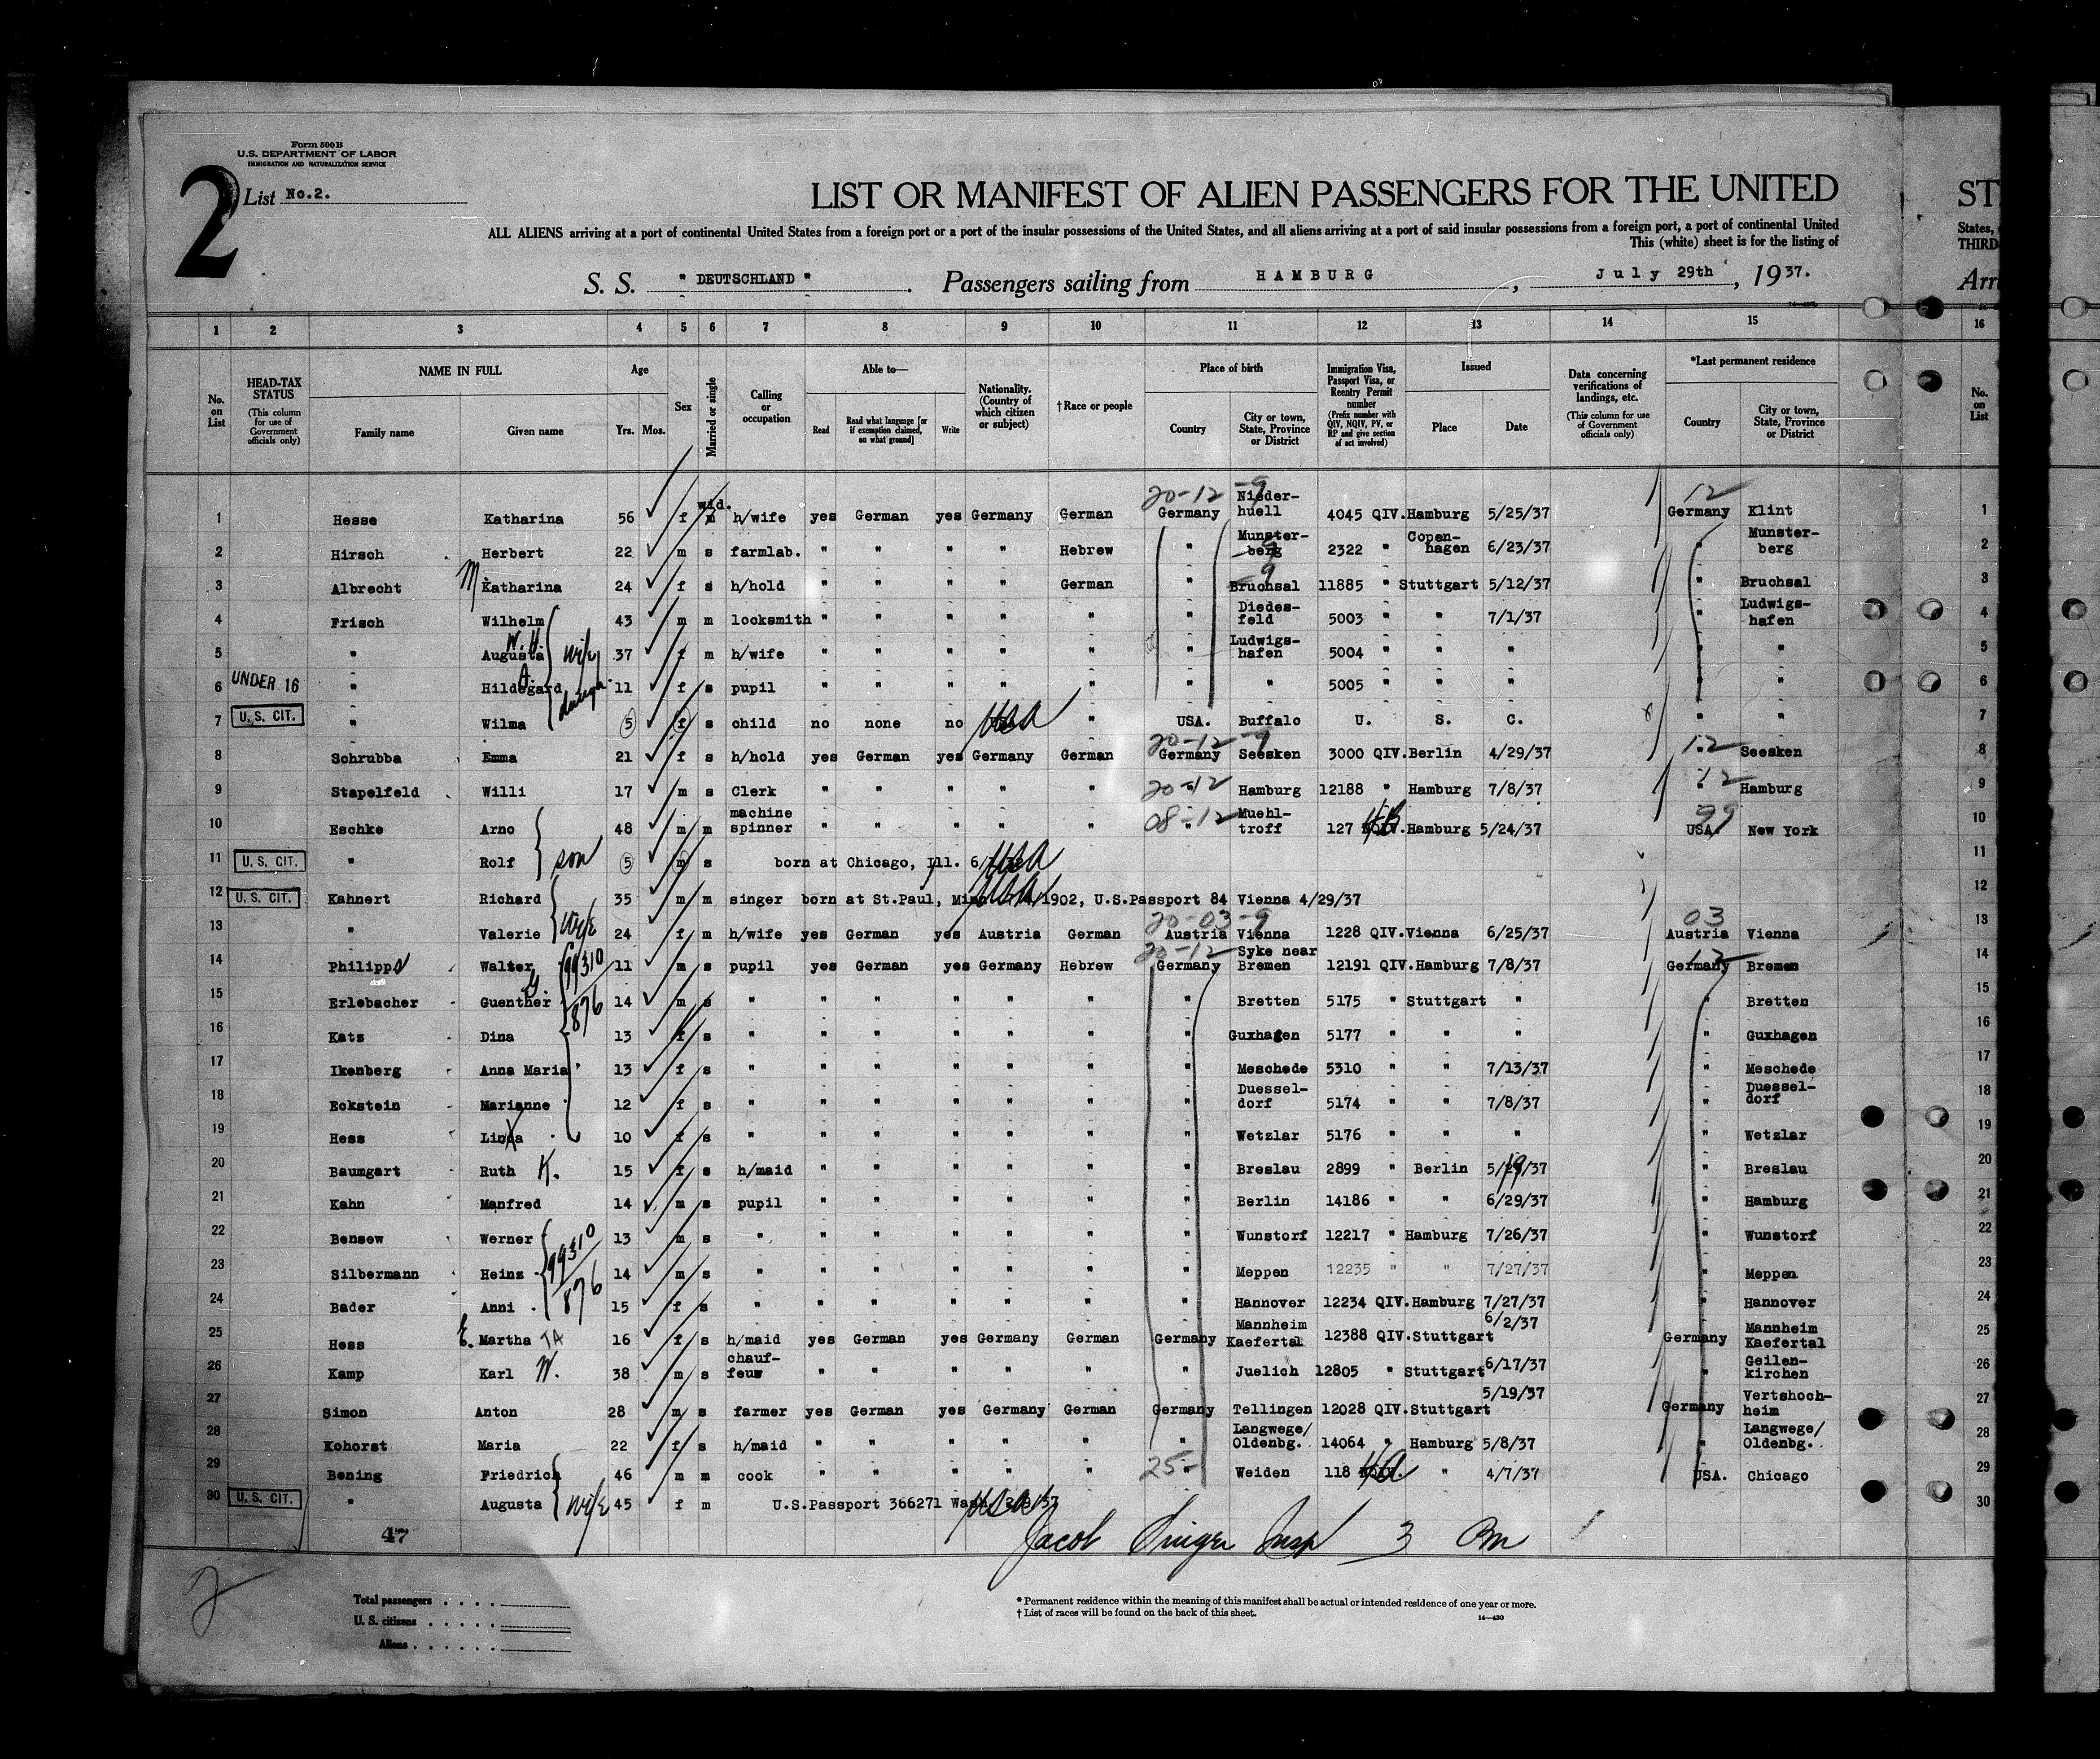 Form 500 B
U.S. DEPARTMENT OF LABOR
IMMIGRATION AND NATURALIZATION SERVICE
2
List No.2.
LIST OR MANIFEST OF ALIEN PASSENGERS FOR THE UNITED
ST
ALL ALIENS arriving at a port of continental United States from a foreign port or a port of the insular possessions of the United States, and all aliens arriving at a port of said insular possessions from a foreign port, a port of continental United
States,
This (white) sheet is for the listing of
THIRD
S. S. " DEUTSCHLAND " . Passengers sailing from HAMBURG , July 29th , 1937.
Arri
1 2 3 4 5 6 7 8 9 10 11 12 13 14 15 16
No. on List
HEAD-TAX STATUS (This column for use of Government officials only)
NAME IN FULL Family name Given name
Age Yrs. Mos.
Sex
Married or single
Calling or occupation
Able to— Read Read what language [or if exemption claimed, on what ground] Write
Nationality. (Country of which citizen or subject)
†Race or people
Place of birth Country City or town, State, Province or District
Immigration Visa, Passport Visa, or Reentry Permit number (Prefix number with QIV, NQIV, PV, or RP and give section of act involved)
Issued Place Date
Data concerning verifications of landings, etc. (This column for use of Government officials only)
*Last permanent residence Country City or town, State, Province or District
No. on List
1 Hesse Katharina 56 f wid. m h/wife yes German yes Germany German 20-12-9 Germany Nieder-huell 4045 QIV. Hamburg 5/25/37 12 Germany Klint 1
2 Hirsch Herbert 22 m s farmlab. " " " " Hebrew " Munster-berg 2322 " Copen-hagen 6/23/37 " Munster-berg 2
3 Albrecht M Katharina 24 f s h/hold " " " " German " 9 Bruchsal 11885 " Stuttgart 5/12/37 " Bruchsal 3
4 Frisch Wilhelm 43 m m locksmith " " " " " " Diedes-feld 5003 " " 7/1/37 " Ludwigs-hafen 4
5 " Augusta W. H. wife 37 f m h/wife " " " " " " Ludwigs-hafen 5004 " " " " " 5
6 UNDER 16 " Hildegard A. daugh. 11 f s pupil " " " " " " " 5005 " " " " " 6
7 U.S. CIT. " Wilma 5 f s child no none no USA " USA. Buffalo U. S. C. " " 7
8 Schrubba Emma 21 f s h/hold yes German yes Germany German 20-12-9 Germany Seesken 3000 QIV. Berlin 4/29/37 12 " Seesken 8
9 Stapelfeld Willi 17 m s Clerk " " " " " 20-12 " Hamburg 12188 " Hamburg 7/8/37 12 " Hamburg 9
10 Eschke Arno 48 m m machine spinner " " " " " 08-12 " Muehl-troff 127 4B Hamburg 5/24/37 99 USA. New York 10
11 U.S. CIT. " Rolf son 5 m s born at Chicago, Ill. USA 11
12 U.S. CIT. Kahnert Richard 35 m m singer born at St.Paul, USA 1902, U.S.Passport 84 Vienna 4/29/37 12
13 " Valerie wife 24 f m h/wife yes German yes Austria German 20-03-9 Austria Vienna 1228 QIV. Vienna 6/25/37 03 Austria Vienna 13
14 Philipp Walter 99310/876 11 m s pupil yes German yes Germany Hebrew 20-12 Germany Syke near Bremen 12191 QIV. Hamburg 7/8/37 12 Germany Bremen 14
15 Erlebacher Guenther 14 m s " " " " " " " Bretten 5175 " Stuttgart " " Bretten 15
16 Katz Dina 13 f s " " " " " " " Guxhagen 5177 " " " " Guxhagen 16
17 Ikenberg Anna Maria 13 f s " " " " " " " Meschede 5310 " " 7/13/37 " Meschede 17
18 Eckstein Marianne 12 f s " " " " " " " Duessel-dorf 5174 " " 7/8/37 " Duessel-dorf 18
19 Hess Linda 10 f s " " " " " " " Wetzlar 5176 " " " " Wetzlar 19
20 Baumgart Ruth K. 15 f s h/maid " " " " " " Breslau 2899 " Berlin 5/19/37 " Breslau 20
21 Kahn Manfred 14 m s pupil " " " " " " Berlin 14186 " " 6/29/37 " Hamburg 21
22 Bensew Werner 13 m s " " " " " " " Wunstorf 12217 " Hamburg 7/26/37 " Wunstorf 22
23 Silbermann Heinz 99310/876 14 m s " " " " " " " Meppen 12235 " " 7/27/37 " Meppen 23
24 Bader Anni 15 f s " " " " " " " Hannover 12234 QIV. Hamburg 7/27/37 " Hannover 24
25 Hess E. Martha 16 f s h/maid yes German yes Germany German Germany Mannheim Kaefertal 12388 QIV. Stuttgart 6/2/37 Germany Mannheim Kaefertal 25
26 Kamp Karl W. 38 m s chauf-feur " " " " " " Juelich 12805 " Stuttgart 6/17/37 " Geilen-kirchen 26
27 Simon Anton 28 m s farmer yes German yes Germany German Germany Tellingen 12028 QIV. Stuttgart 5/19/37 Germany Vertshoch-heim 27
28 Kohorst Maria 22 f s h/maid " " " " " " Langwege/Oldenbg. 14064 " Hamburg 5/8/37 " Langwege/Oldenbg. 28
29 Bening Friedrich 46 m m cook " " " " " 25- " Weiden 118 4a " 4/7/37 USA. Chicago 29
30 U.S. CIT. " Augusta wife 45 f m U.S.Passport 366271 USA 30
47
Jacob Singer Insp 3
2
Total passengers
U. S. citizens
Aliens
* Permanent residence within the meaning of this manifest shall be actual or intended residence of one year or more.
† List of races will be found on the back of this sheet.
14—430